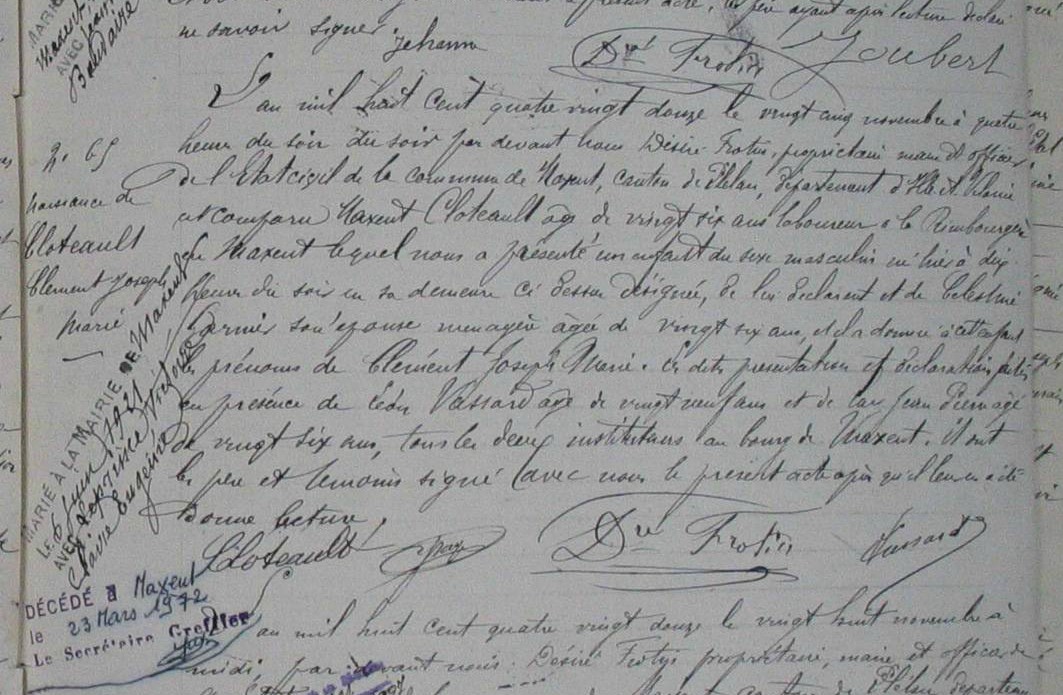 MARIE
Maxent
AVEC Jean
présent acte, le père ayant après lecture déclaré
ne savoir signer Jehanne
Dré Frotin Joubert
L'an mil huit cent quatre vingt douze le vingt cinq novembre à quatre
heures du soir du soir par devant nous Désiré Frotin, propriétaire maire et officier
de l'Etat civil de la commune de Maxent, canton de Plélan, département d'Ille et Vilaine
est comparu Maxent Cloteault âgé de vingt six ans laboureur à la Rimbourgère
en Maxent lequel nous a présenté un enfant du sexe masculin né hier à dix
heures du soir en sa demeure ci dessus désignée, de lui déclarant et de Célestine
son épouse ménagère âgée de vingt six ans, et il a donné à cet enfant
les prénoms de Clément Joseph Marie. Les dites présentation et déclaration faites
en présence de Léon Vassard âgé de vingt neuf ans et de Jean Pierre âgé
de vingt six ans, tous les deux instituteurs au bourg de Maxent. Il ont
les père et témoins signé avec nous le présent acte après qu'il leur en a été
donné lecture.
Cloteault Dré Frotin Vassard
N. 65
naissance de
Cloteault
Clément Joseph
Marie
MARIÉ À LA MAIRIE DE Maxent
LE 6 Juin 1921
AVEC
Marie Eugénie Victorine
DÉCÉDÉ à Maxent
le 23 Mars 1972
Le Secrétaire Greffier
L'an mil huit cent quatre vingt douze le vingt huit novembre à
midi, par devant nous Désiré Frotin propriétaire, maire et officier de